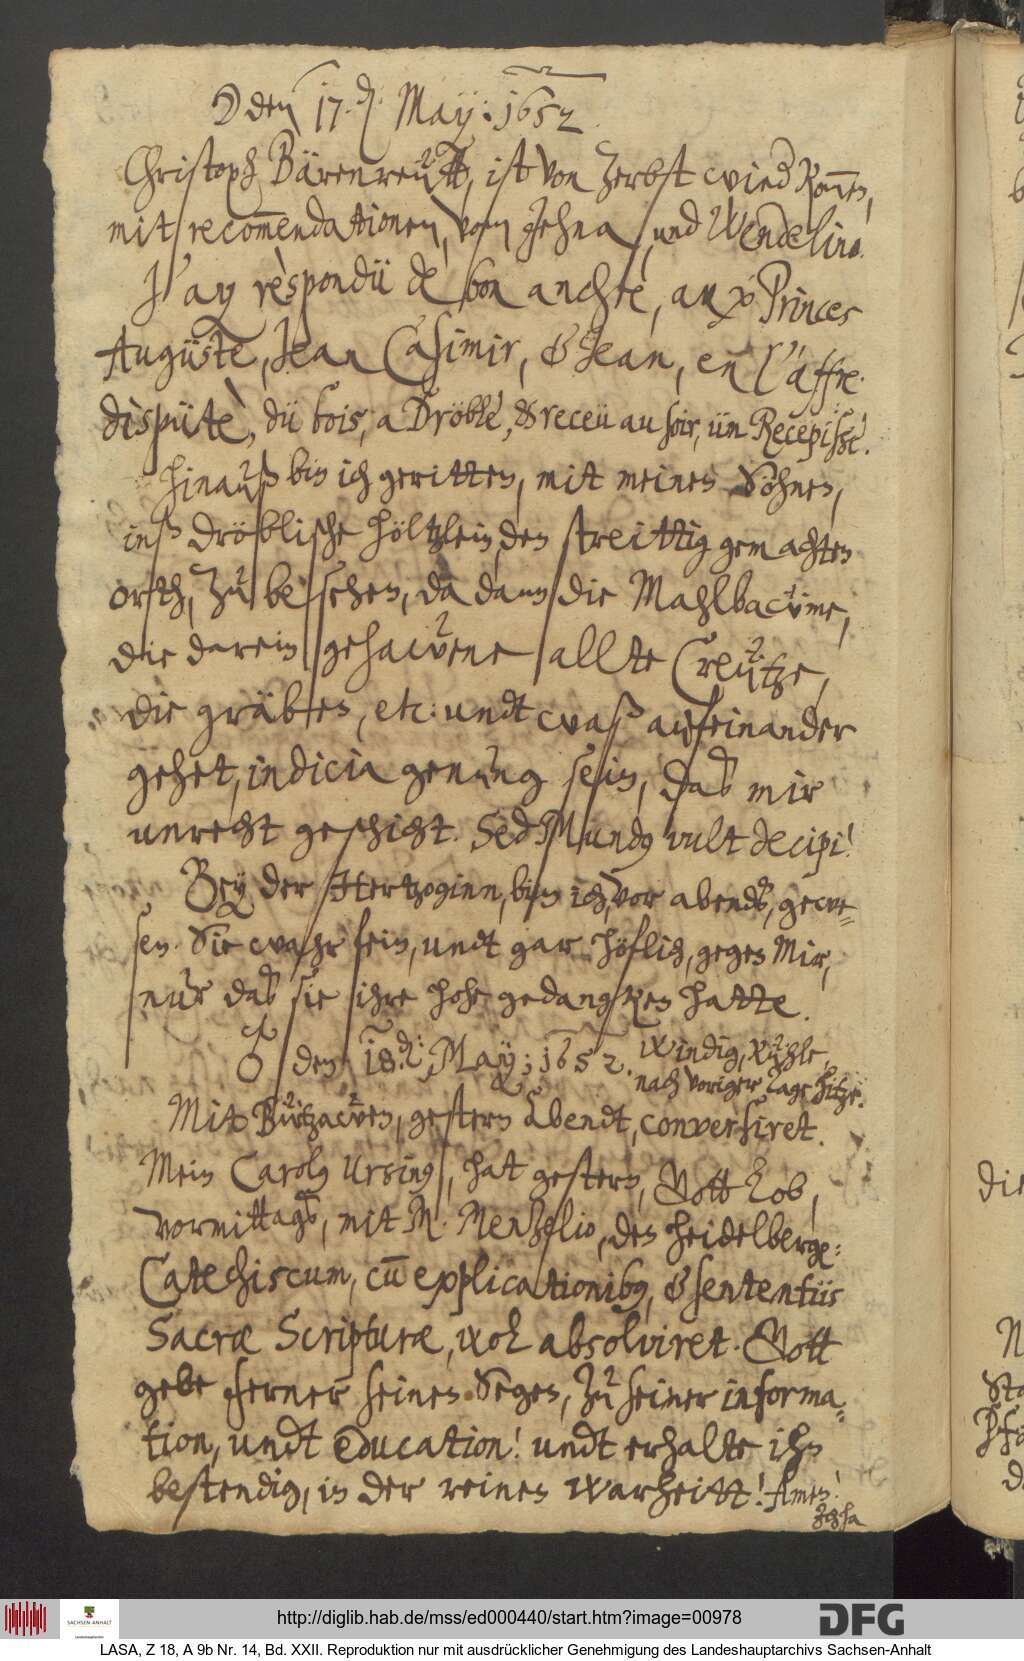 ☽ den 17. d: May: 1652.
Christoph Bärenreütt, ist von Zerbst wied Kom̄en,
mit recom̄endationen, vom Jehna, und Wendelino.
J'ay rèspondü de bon anchre, aux Princes
Augüste, Jean Casimir, & Jean, en l'affre.
dispüte, dü bois, a Dröble, & receü au soir, ün Recepisse.
Hinauß bin ich geritten, mit meinen Söhnen,
inß dröblische höltzlein, den streittig gemachten
orth, zu besehen, da dann die Mahlbawme,
die darein gehawene allte Creütze,
die gräben, etc: undt waß aufeinander
gehet, indicia genung sein, daß mir
unrecht geschicht. Sed Mundus vult decipi!
Bey der Hertzoginn, bin ich, vor abends, gewe-
sen. Sie wahr fein, undt gar höflich, gegen Mir,
nur daß sie ihre hohe gedancken hatte.
♂ den 18. d: May: 1652. Windig, Kühle,
nach voriger Tage hitze.
Mit Bürtzawen, gestern Abendt, conversiret.
Mein Carolus Ursinus, hat gestern, Gott Lob,
vormittags, mit M. Menzelio, den Heidelberge:
Catechiscum, cū explicationibus, & sententiis
Sacræ Scripturæ, wol absolviret. Gott
gebe ferner seinen Segen, zu seiner informa-
tion, undt education! undt erhalte ihn
bestendig, in der reinen warheitt! Amen!
die
N
Sta
Pfa
d
http://diglib.hab.de/mss/ed000440/start.htm?image=00978
SACHSEN-ANHALT
DFG
LASA, Z 18, A 9b Nr. 14, Bd. XXII. Reproduktion nur mit ausdrücklicher Genehmigung des Landeshauptarchivs Sachsen-Anhalt